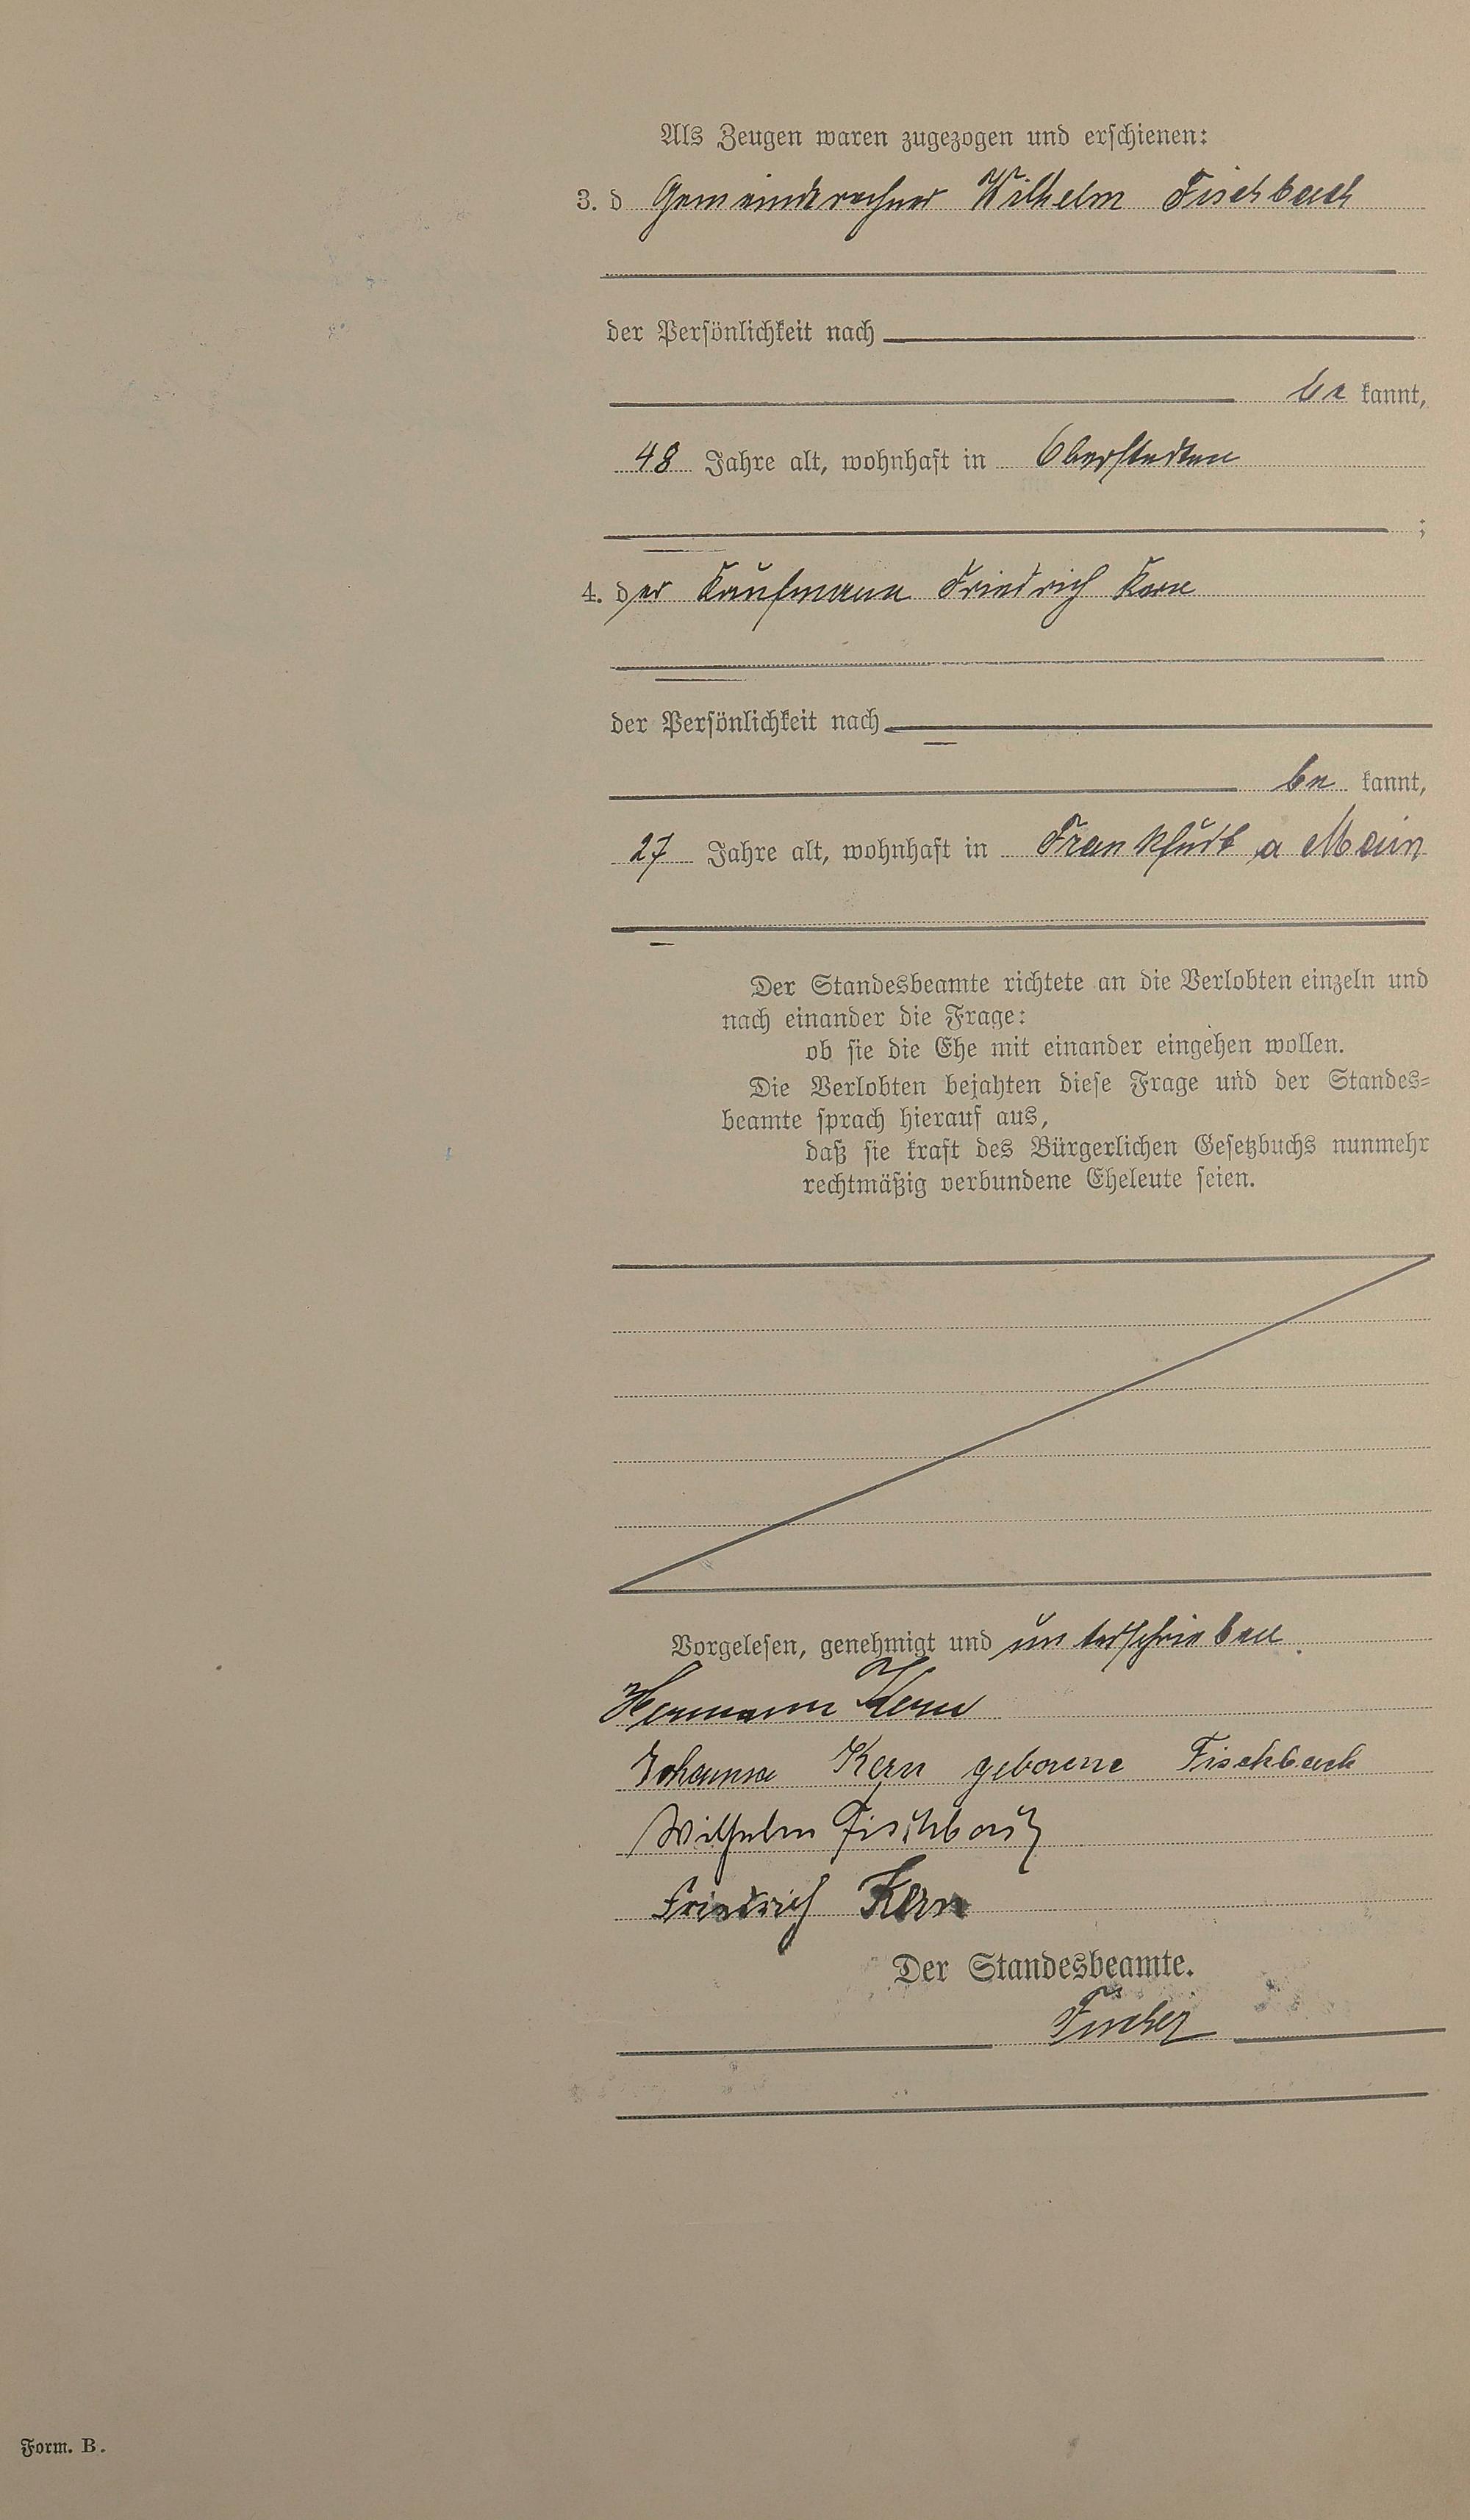 Als Zeugen waren zugezogen und erschienen:
3. d Gemeinderechner Wilhelm Fischbach
der Persönlichkeit nach
be kannt,
48 Jahre alt, wohnhaft in Oberstedten
;
4. der Kaufmann Friedrich Kern
der Persönlichkeit nach
be kannt,
27 Jahre alt, wohnhaft in Frankfurt a Main
Der Standesbeamte richtete an die Verlobten einzeln und
nach einander die Frage:
ob sie die Ehe mit einander eingehen wollen.
Die Verlobten bejahten diese Frage und der Standes=
beamte sprach hierauf aus,
daß sie kraft des Bürgerlichen Gesetzbuchs nunmehr
rechtmäßig verbundene Eheleute seien.
Vorgelesen, genehmigt und unterschrieben.
Hermann Kern
Johanna Kern geborene Fischbach
Wilhelm Fischbach
Friedrich Kern
Der Standesbeamte.
Form. B.